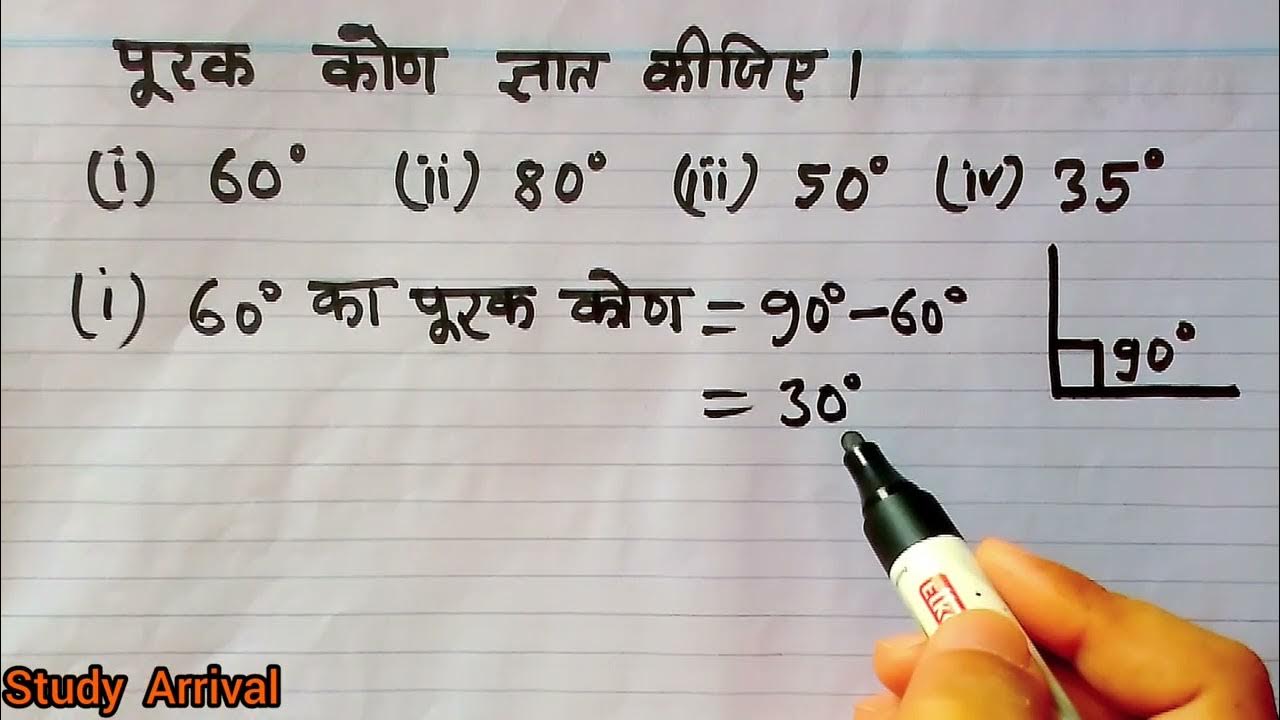 पूरक कोण ज्ञात कीजिए।
(i) 60° (ii) 80° (iii) 50° (iv) 35°
(i) 60° का पूरक कोण = 90° - 60°
= 30°
90°
Study Arrival